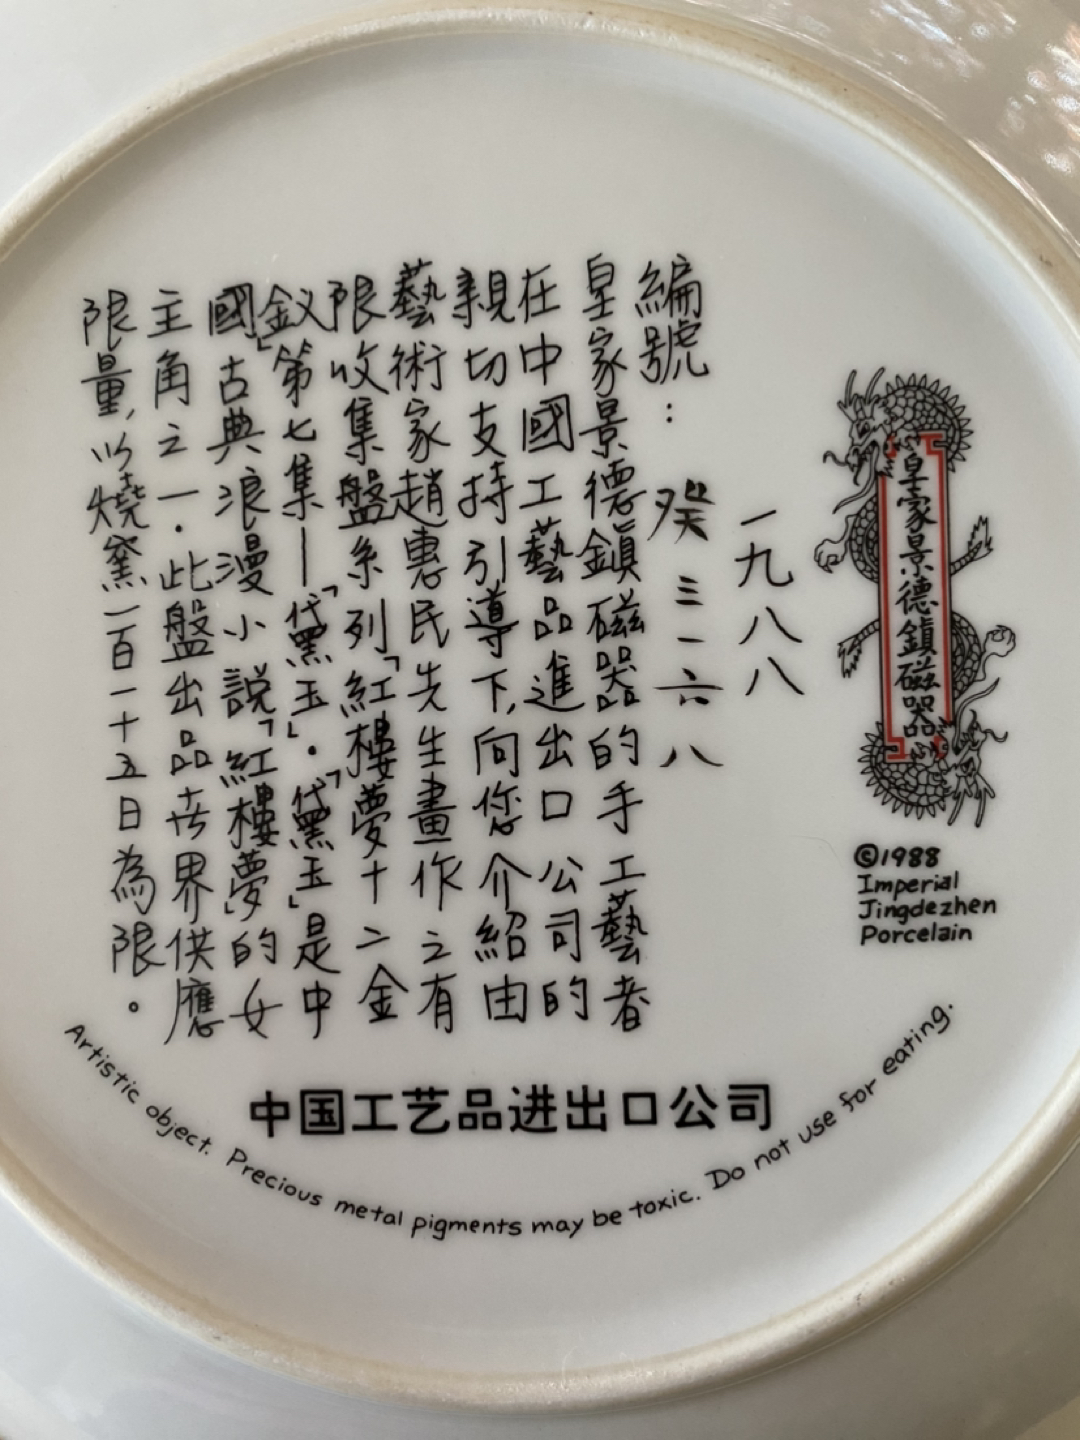 皇家景德鎮磁器
©1988
Imperial
Jingdezhen
Porcelain
一九八八
編號：癸三一六八
皇家景德鎮磁器的手工藝者
在中國工藝品進出口公司的
親切支持引導下,向您介紹由
藝術家趙惠民先生畫作之有
限收集盤系列「紅樓夢十二金
釵」第七集—「黛玉」·「黛玉」是中
國古典浪漫小説「紅樓夢」的女
主角之一·此盤出品世界供應
限量,以燒窯一百一十五日為限。
中国工艺品进出口公司
Artistic object. Precious metal pigments may be toxic. Do not use for eating.